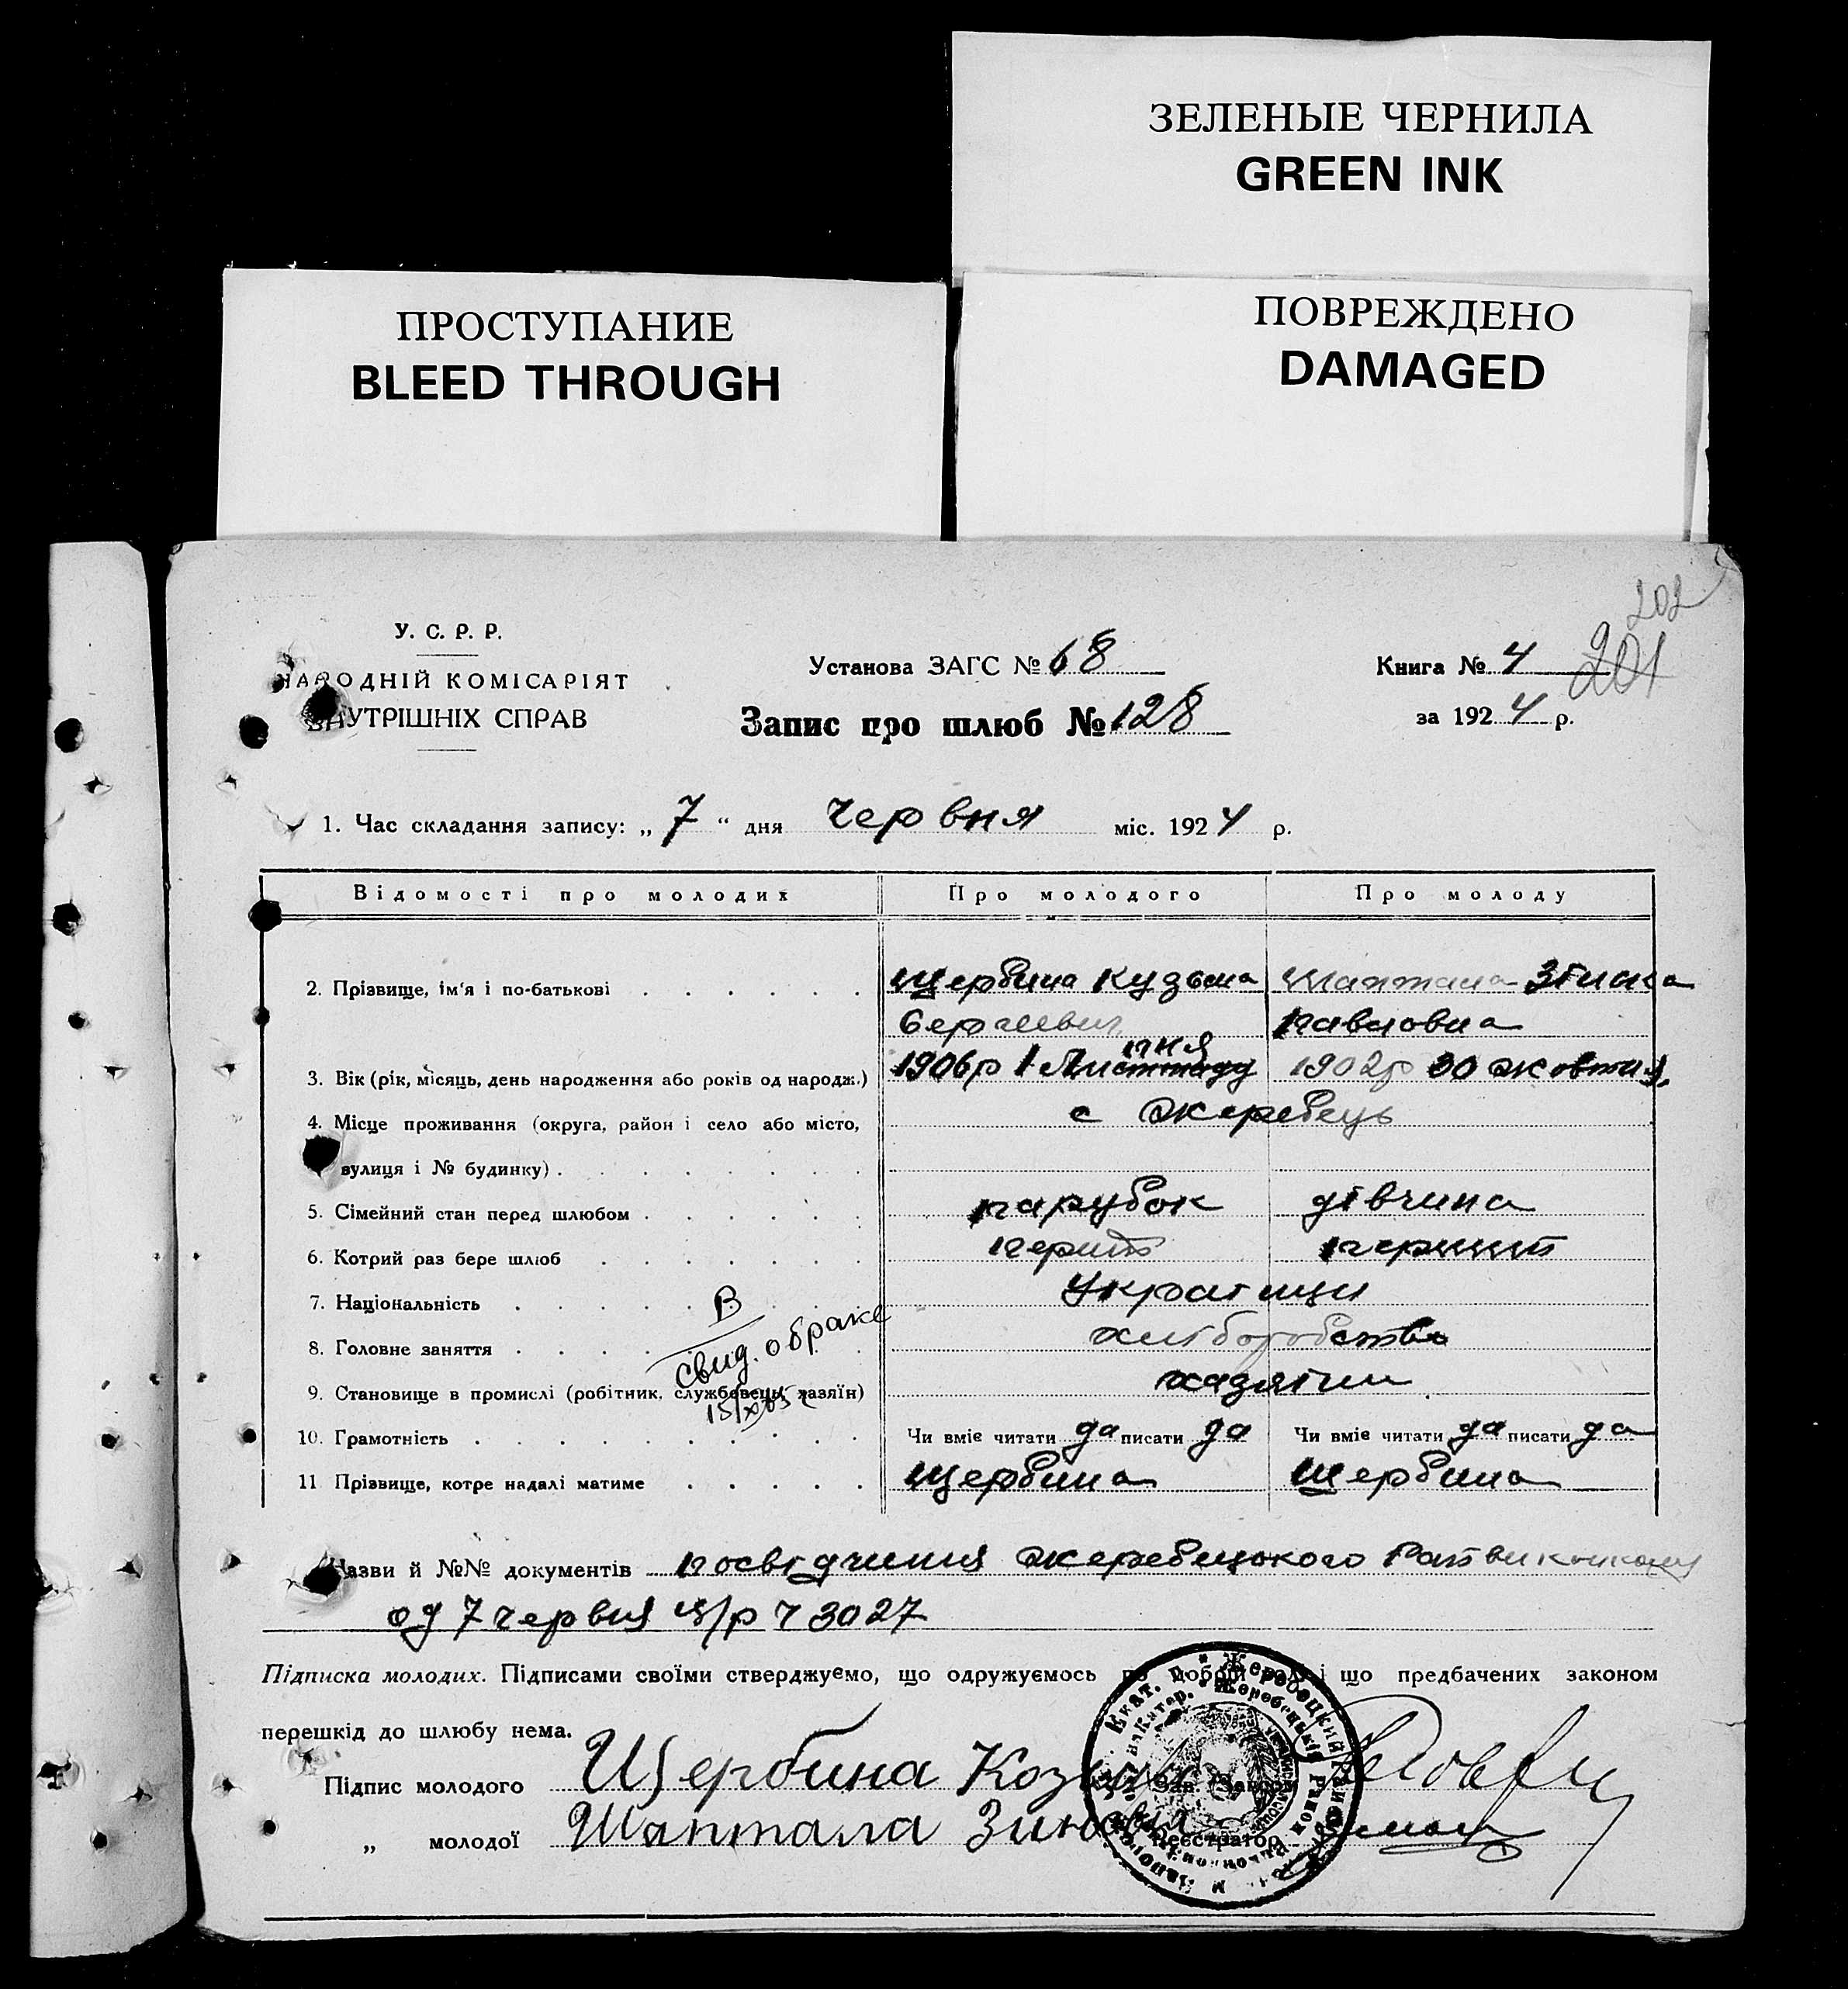 ЗЕЛЕНЫЕ ЧЕРНИЛА
GREEN INK
ПРОСТУПАНИЕ
BLEED THROUGH
ПОВРЕЖДЕНО
DAMAGED
202
201
У. С. Р. Р.
НАРОДНІЙ КОМІСАРІЯТ
ВНУТРІШНІХ СПРАВ
Установа ЗАГС № 68
Запис про шлюб № 128
Книга № 4
за 1924 р.
1. Час складання запису: „ 7 “ дня червня міс. 1924 р.
Відомості про молодих Про молодого Про молоду
2. Прізвище, ім'я і по-батькові Щербина Кузьма Шаптала Зінька
Павловна
пня
3. Вік (рік, місяць, день народження або років од народж.) 1906р 1 Листпаду 1902р 30 жовтня
4. Місце проживання (округа, район і село або місто, с Жеребець
вулиця і № будинку)
5. Сімейний стан перед шлюбом парубок дівчина
6. Котрий раз бере шлюб перший перший
7. Національність Україпці
8. Головне заняття хліборобство
9. Становище в промислі (робітник, службовець, хазяїн) хазяїни
В
свид. о браке
10. Грамотність Чи вміє читати да писати да Чи вміє читати да писати да
11 Прізвище, котре надалі матиме Щербина Щербина
Назви й №№ документів посвідчення Жеребецького Райвиконкому
од 7 червня ц/р Ч 3027
Підписка молодих. Підписами своїми стверджуємо, що одружуємось по добрій волі і що предбачених законом
перешкід до шлюбу нема.
Підпис молодого Щербина Козьма
„ молодої Шаптала Зиновія
Реєстратор